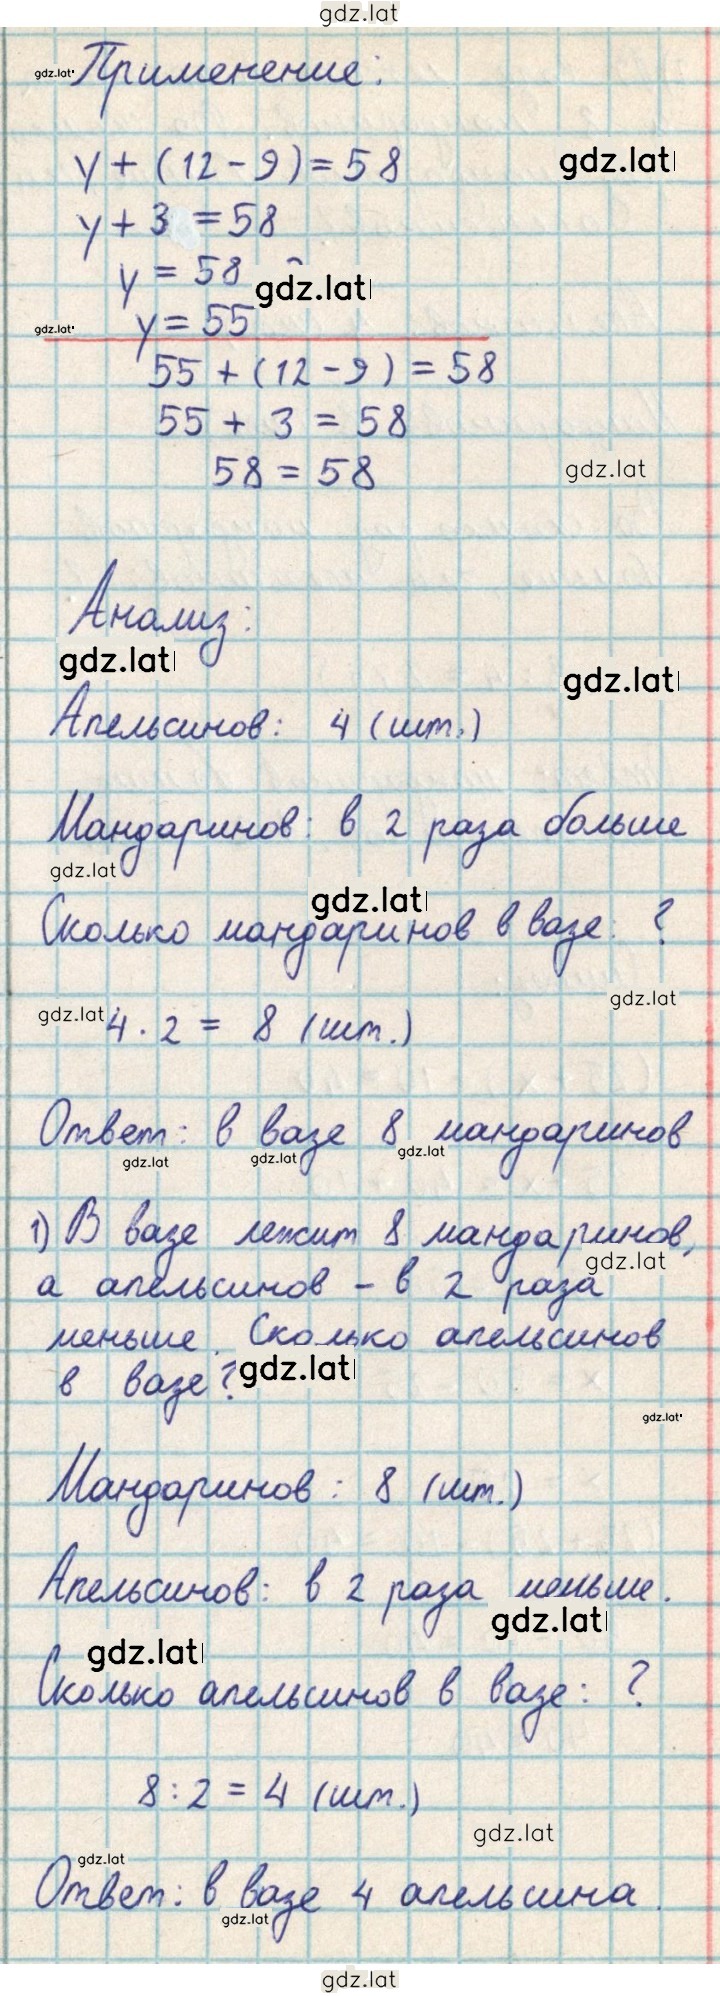 gdz.lat
gdz.lat
Применение:
y + (12 - 9) = 58
gdz.lat
y + 3 = 58
y = 58
gdz.lat
gdz.lat
y = 55
55 + (12 - 9) = 58
55 + 3 = 58
58 = 58
gdz.lat
Анализ:
gdz.lat
gdz.lat
Апельсинов: 4 (шт.)
Мандаринов: в 2 раза больше
gdz.lat
gdz.lat
Сколько мандаринов в вазе: ?
gdz.lat
gdz.lat
4 · 2 = 8 (шт.)
Ответ: в вазе 8 мандаринов
gdz.lat gdz.lat gdz.lat
1) В вазе лежит 8 мандаринов,
gdz.lat
а апельсинов – в 2 раза
меньше. Сколько апельсинов
в вазе?
gdz.lat
gdz.lat
Мандаринов: 8 (шт.)
Апельсинов: в 2 раза меньше.
gdz.lat
gdz.lat
Сколько апельсинов в вазе: ?
8 : 2 = 4 (шт.)
gdz.lat
gdz.lat
Ответ: в вазе 4 апельсина.
gdz.lat
gdz.lat